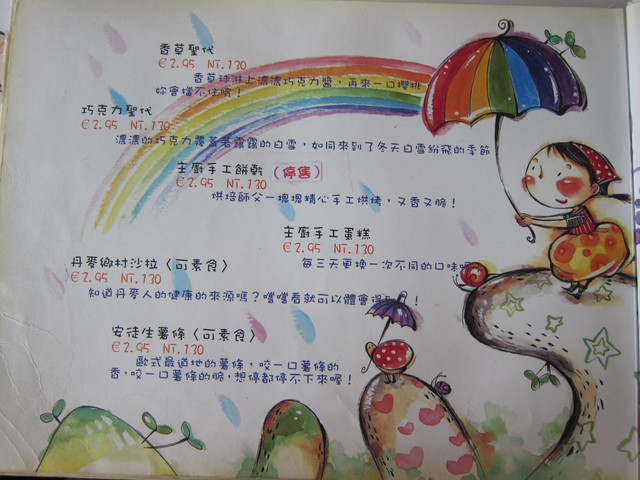 香草聖代
€2.95 NT.130
香草球淋上濃濃巧克力醬，再來一口櫻桃
妳會擋不住喔！
巧克力聖代
€2.95 NT.130
濃濃的巧克力覆蓋著靄靄的白雪，如同來到了冬天白雪紛飛的季節
主廚手工餅乾（停售）
€2.95 NT.130
烘培師父一塊塊精心手工烘烤，又香又脆！
主廚手工蛋糕
€2.95 NT.130
每三天更換一次不同的口味喔
丹麥鄉村沙拉〈可素食〉
€2.95 NT.130
知道丹麥人的健康的來源嗎？嚐嚐看就可以體會得到！
安徒生薯條〈可素食〉
€2.95 NT.130
歐式最道地的薯條，咬一口薯條的
香，咬一口薯條的脆，想停都停不下來喔！